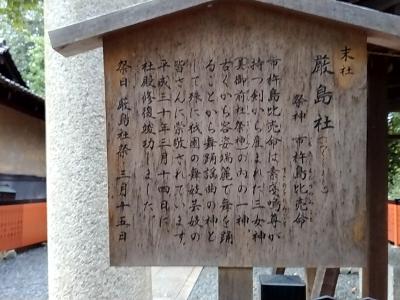 末社
厳島社（いつくしましゃ）
祭神 市杵島比売命
市杵島比売命は素戔嗚尊が
持つ剣から産まれた三女神
美御前社祭神の内の一神。
古くから容姿端麗で舞を踊
ることから舞踊謡曲の神と
して殊に祇園の舞妓芸妓の
皆さんに崇敬されています。
平成三十年三月十四日に
社殿修復竣功しました。
祭日 厳島社祭 三月十五日